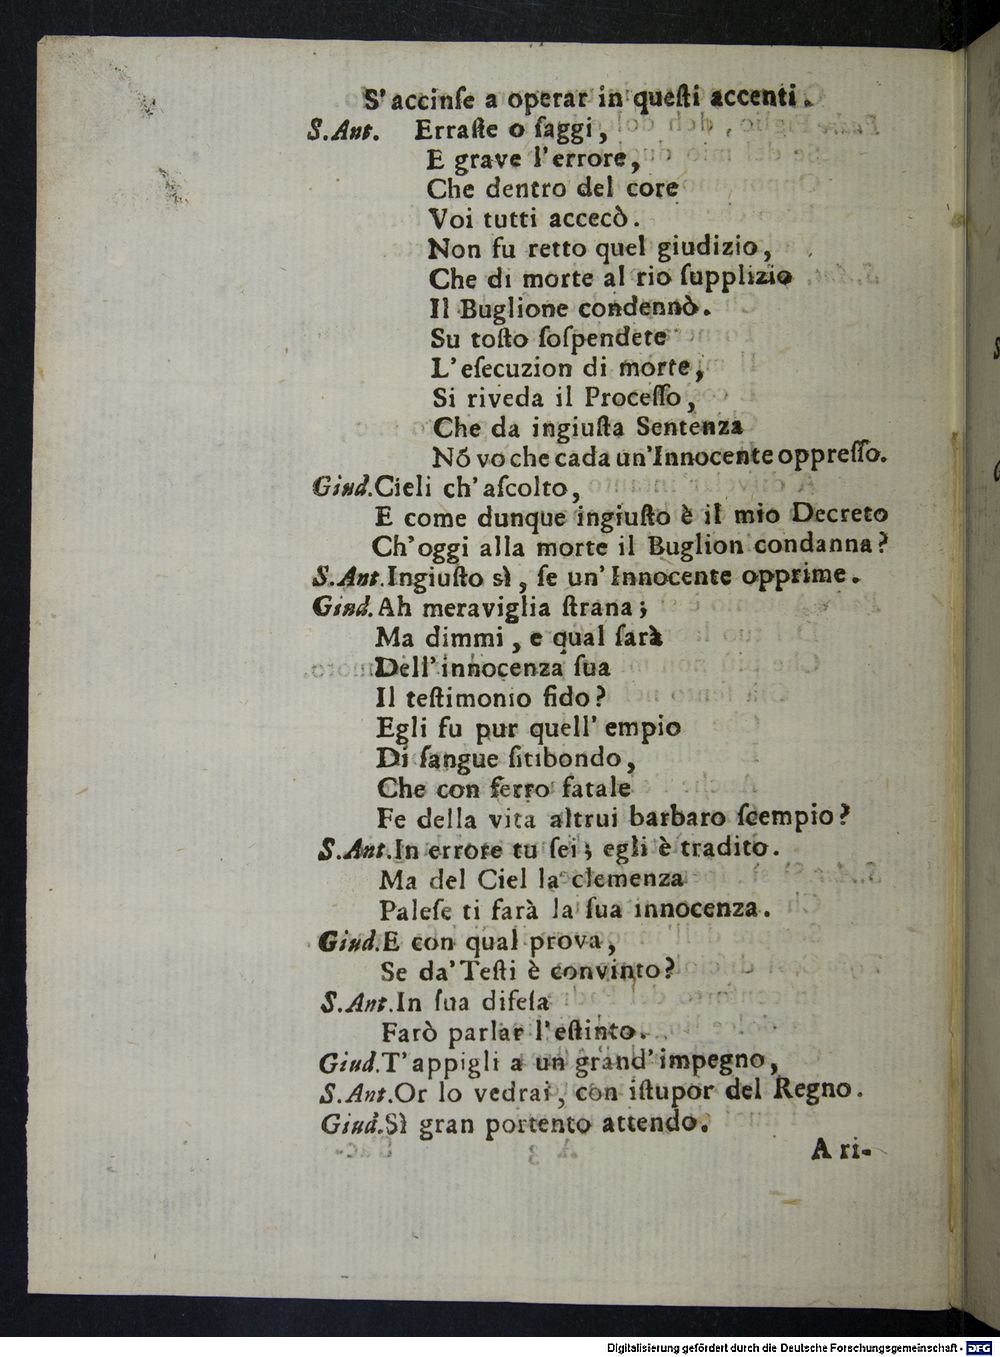 S'accinſe a operar in queſti accenti.
S.Ant. Erraſte o ſaggi,
E grave l'errore,
Che dentro del core
Voi tutti accecò.
Non fu retto quel giudizio,
Che di morte al rio ſupplizio
Il Buglione condennò.
Su toſto ſoſpendete
L'eſecuzion di morte,
Si riveda il Proceſſo,
Che da ingiuſta Sentenza
Nó vo che cada un'Innocente oppreſſo.
Giud.Cieli ch'aſcolto,
E come dunque ingiuſto è il mio Decreto
Ch'oggi alla morte il Buglion condanna?
S.Ant.Ingiuſto sì, ſe un'Innocente opprime.
Giud.Ah meraviglia ſtrana;
Ma dimmi, e qual ſarà
Dell'innocenza ſua
Il teſtimonio fido?
Egli fu pur quell'empio
Di ſangue ſitibondo,
Che con ferro fatale
Fe della vita altrui barbaro ſcempio?
S.Ant.In errore tu ſei; egli è tradito.
Ma del Ciel la clemenza
Paleſe ti farà la ſua innocenza.
Giud.E con qual prova,
Se da'Teſti è convinto?
S.Ant.In ſua difeſa
Farò parlar l'eſtinto.
Giud.T'appigli a un grand'impegno,
S.Ant.Or lo vedrai, con iſtupor del Regno.
Giud.Sì gran portento attendo.
A ri-
Digitalisierung gefördert durch die Deutsche Forschungsgemeinschaft - DFG